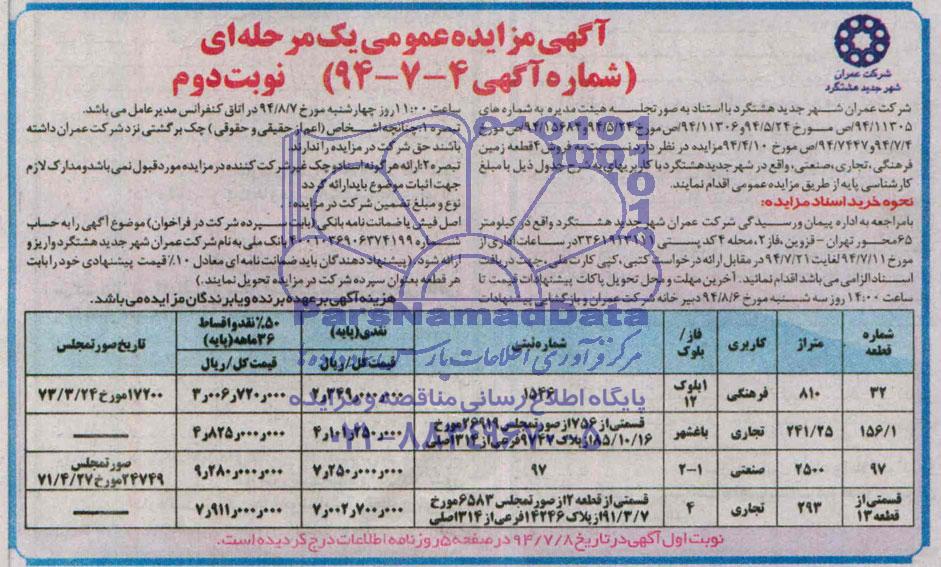 آگهی مزایده عمومی یک مرحله‌ای
(شماره آگهی ۴-۷-۹۴) نوبت دوم
شرکت عمران
شهر جدید هشتگرد
شرکت عمران شهر جدید هشتگرد با استناد به صورتجلسه هیئت مدیره به شماره های
۹۴/۱۱۳۰۵/ص مورخ ۹۴/۵/۲۴ و ۹۴/۱۱۳۰۶/ص مورخ ۹۴/۵/۲۴ و ۹۴/۱۵۶۸۴/ص مورخ
۹۴/۷/۴ و ۹۴/۷۴۴۷/ص مورخ ۹۴/۴/۱۰ مزایده در نظر دارد نسبت به فروش ۴ قطعه زمین
فرهنگی، تجاری، صنعتی، واقع در شهر جدید هشتگرد با کاربریهای، به شرح جدول ذیل با مبلغ
کارشناسی پایه از طریق مزایده عمومی اقدام نمایند.
نحوه خرید اسناد مزایده:
با مراجعه به اداره پیمان و رسیدگی شرکت عمران شهر جدید هشتگرد واقع در کیلومتر
۶۵ محور تهران - قزوین، فاز ۲، محله ۴ کد پستی ۳۳۶۱۹۲۳۱۱۱ در ساعات اداری از
مورخ ۹۴/۷/۱۱ لغایت ۹۴/۷/۲۱ در مقابل ارائه درخواست کتبی، کپی کارت ملی، جهت دریافت
اسناد الزامی می باشد اقدام نمائید. آخرین مهلت و محل تحویل پاکات پیشنهادات قیمت تا
ساعت ۱۴:۰۰ روز سه شنبه مورخ ۹۴/۸/۶ دبیر خانه شرکت عمران و بازگشایی پیشنهادات
ساعت ۱۱:۰۰ روز چهارشنبه مورخ ۹۴/۸/۷ در اتاق کنفرانس مدیر عامل می باشد.
تبصره ۱: چنانچه اشخاص (اعم از حقیقی و حقوقی) چک برگشتی نزد شرکت عمران داشته
باشند حق شرکت در مزایده را ندارند.
تبصره ۲: ارائه هر گونه اسناد و چک غیر شرکت کننده در مزایده مورد قبول نمی باشد و مدارک لازم
جهت اثبات موضوع باید ارائه گردد.
نوع و مبلغ تضمین شرکت در مزایده:
اصل فیش یا ضمانت نامه بانکی، (بابت سپرده شرکت در فراخوان) موضوع آگهی را به حساب
شماره بانک ملی به نام شرکت عمران شهر جدید هشتگرد واریز و
ارائه شود. (پیشنهاد دهندگان باید ضمانت نامه ای معادل ۱۰٪ قیمت پیشنهادی خود را بابت
هر قطعه بعنوان سپرده شرکت در مزایده تحویل نمایند.)
هزینه آگهی بر عهده برنده و یا برندگان مزایده می باشد.
شماره قطعه | متراژ | کاربری | فاز/بلوک | شماره ثبتی | نقدی (پایه) قیمت کل/ریال | ۵۰٪ نقد و اقساط ۳۶ ماهه (پایه) قیمت کل/ریال | تاریخ صورتمجلس
۳۲ | ۸۱۰ | فرهنگی | ۱ بلوک ۱۲ | ۱۵۴۶ | ۲٫۳۴۹٫۰۰۰٫۰۰۰ | ۳٫۰۰۶٫۷۲۰٫۰۰۰ | ۱۷۲۰۰ مورخ ۷۳/۳/۲۴
۱۵۶/۱ | ۲۴۱/۲۵ | تجاری | باغشهر | قسمتی از ۷۵۶ از صورتمجلس ۲۶۹۱۹ مورخ ۸۵/۱۰/۱۶ از پلاک ۹۲۴۷ فرعی از ۳۱۴ اصلی | ۴٫۱۰۱٫۲۵۰٫۰۰۰ | ۴٫۸۲۵٫۰۰۰٫۰۰۰ | ———
۹۷ | ۲۵۰۰ | صنعتی | ۲-۱ | ۹۷ | ۷٫۲۵۰٫۰۰۰٫۰۰۰ | ۹٫۲۸۰٫۰۰۰٫۰۰۰ | صورتمجلس ۲۴۷۴۹ مورخ ۷۱/۴/۲۷
قسمتی از قطعه ۱۳ | ۲۹۳ | تجاری | ۴ | قسمتی از قطعه ۱۲ از صورتمجلس ۶۵۸۳ مورخ ۹۱/۳/۷ از پلاک ۱۴۲۴۶ فرعی از ۳۱۴ اصلی | ۷٫۰۰۲٫۷۰۰٫۰۰۰ | ۷٫۹۱۱٫۰۰۰٫۰۰۰ | ———
نوبت اول آگهی در تاریخ ۹۴/۷/۸ در صفحه ۵ روزنامه اطلاعات درج گردیده است.
ParsNamadData
مرکز فرآوری اطلاعات پارس نماد داده‌ها
پایگاه اطلاع رسانی مناقصه و مزایده